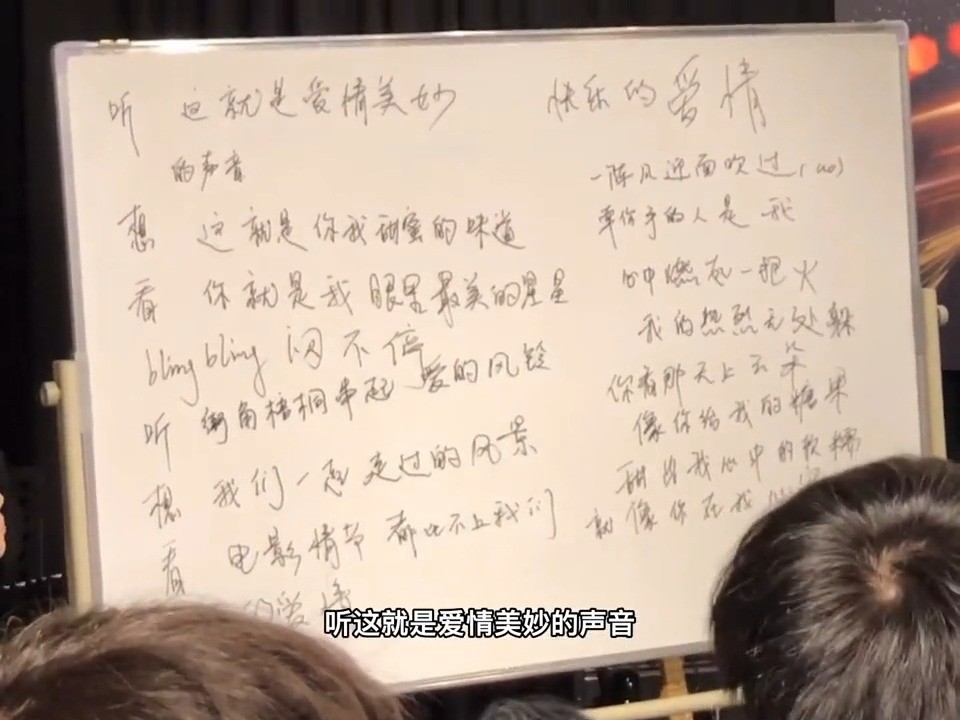 听 这就是爱情美妙
的声音
想 这就是你我甜蜜的味道
看 你就是我眼里最美的星星
bling bling 闪不停
听 街角梧桐串起 爱的风铃
想 我们一起走过的风景
看 电影情节都比不上我们
的爱
快乐的爱情
一阵风迎面吹过(wo)
牵你手的人是我
心中燃起一把火
我的热烈无处躲
你看那天上云朵
像你给我的糖果
甜 我心中的软糯
就像你在我
听这就是爱情美妙的声音